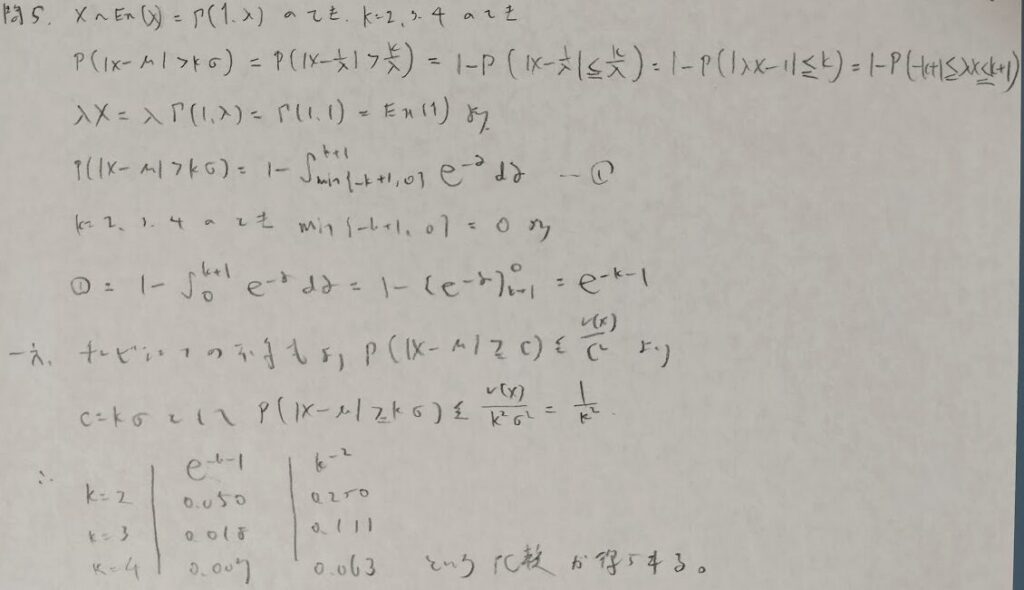 問5. X~Ex(λ) = Γ(1,λ) のとき. k=2, 3, 4 のとき
P(|X-μ|>kσ) = P(|X-1/λ|>k/λ) = 1-P(|X-1/λ|≦k/λ) = 1-P(|λX-1|≦k) = 1-P(-k+1≦λX≦k+1)
λX = λΓ(1,λ) = Γ(1,1) = Ex(1) より
P(|X-μ|>kσ) = 1-∫_{min{-k+1,0}}^{k+1} e^{-z} dz ... ①
k=2, 3, 4 のとき min{-k+1, 0} = 0 より
① = 1-∫_0^{k+1} e^{-z} dz = 1-[e^{-z}]_{k+1}^0 = e^{-k-1}
一方. チェビシェフの不等式より, P(|X-μ|≧c)≦V(X)/c² より
c=kσとして P(|X-μ|≧kσ)≦V(X)/k²σ² = 1/k².
∴ e^{-k-1} k^{-2}
k=2 0.050 0.250
k=3 0.018 0.111
k=4 0.007 0.063 という比較が得られる。